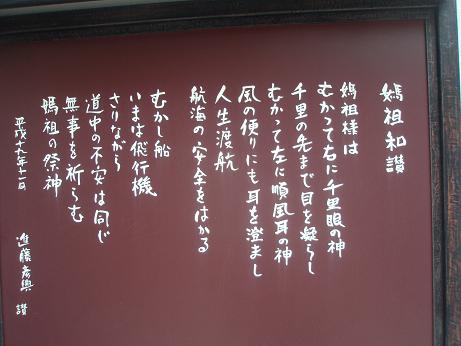 媽祖和讃
媽祖様は
むかって右に千里眼の神
千里の先まで目を凝らし
むかって左に順風耳の神
風の便りにも耳を澄まし
人生渡航
航海の安全をはかる
むかし船
いまは飛行機
さりながら
道中の不安は同じ
無事を祈らむ
媽祖の祭神
平成十九年十一月
進藤彦興 讃